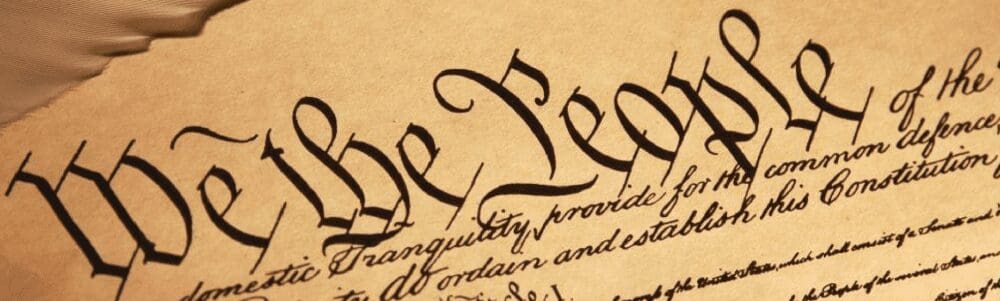 We the People of the
domestic Tranquility, provide for the common defence,
do ordain and establish this Constitution
of the United States, which shall consist of a Senate and
the People of the several States, and